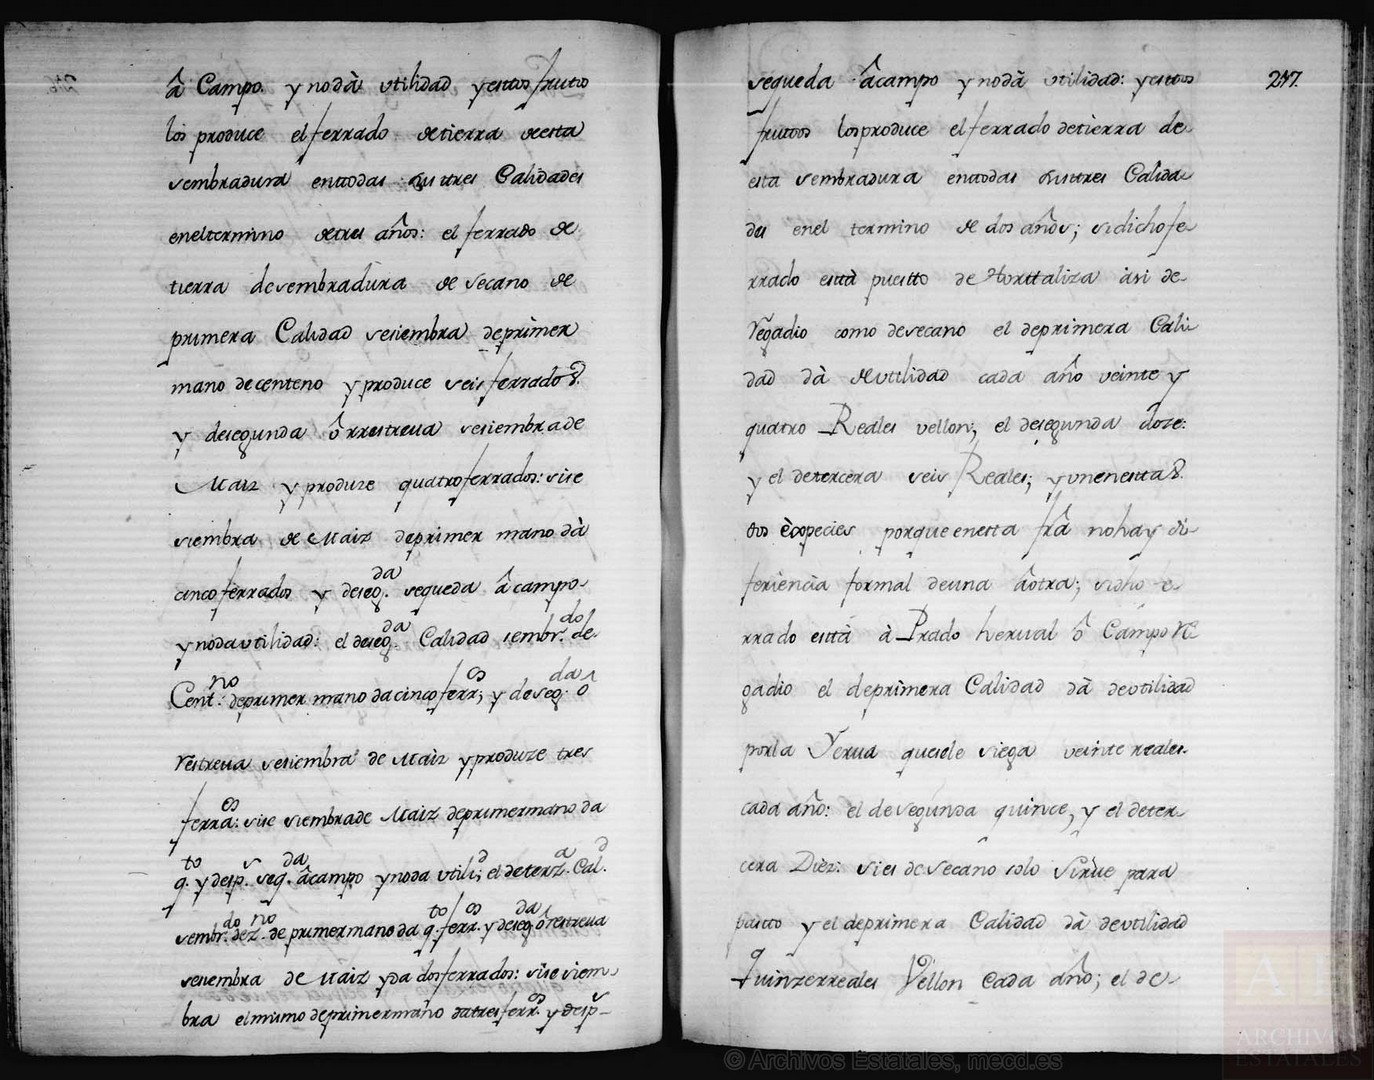 â Campo. y no dà vtilidad y estos frutos
los produce el ferrado de tierra de esta
sembradura en todas sus tres Calidades
en el termino de tres años: el ferrado de
tierra de sembradura de secano de
primera Calidad se siembra de primer
mano de centeno y produce seis ferrados.
y de segunda ô rrestreua se siembra de
Maiz y produze quatro ferrados: si se
siembra de Maiz de primer mano dà
cinco ferrados y de seg.da se queda â campo
y no da vtilidad: el de seg.da Calidad sembr.do de
Cent.no de primer mano da cinco ferr.os; y de seg.da ô
restreua se siembra de Maiz y produze tres
ferra.os: si se siembra de Maiz de primer mano da
q.to y desp.s seg.da â campo y no da vtili.d; el de terz.a Cal.d
sembr.do de z.no de primer mano da q.to ferr.os y de seg.da ô restreua
se siembra de Maiz y da dos ferrados: si se siem-
bra el mismo de primer mano da tres ferr.os y desp.s
se queda â campo y no dà vtilidad: y estos
frutos los produce el ferrado de tierra de
esta sembradura en todas sus tres Calida-
des en el termino de dos años; si dicho fe-
rrado està puesto de Horttaliza àsi de
Regadio como de secano el de primera Cali-
dad dà de vtilidad cada año veinte y
quatro Reales vellon; el de segunda doze:
y el de tercera seis Reales; y vnen estas
dos èspecies porque en esta frâ no hay di-
feriencia formal de una â otra; si dho fe-
rrado està à Prado herual ô Campo Re-
gadio el de primera Calidad dà de vtilidad
por la Yerua que se le siega veinte reales
cada año: el de segunda quince, y el de ter-
cera Diez: si es de secano solo sirue para
pasto y el de primera Calidad dà de vtilidad
Quinze rreales Vellon cada año; el de
247.
© Archivos Estatales, mecd.es
ARCHIVOS
ESTATALES